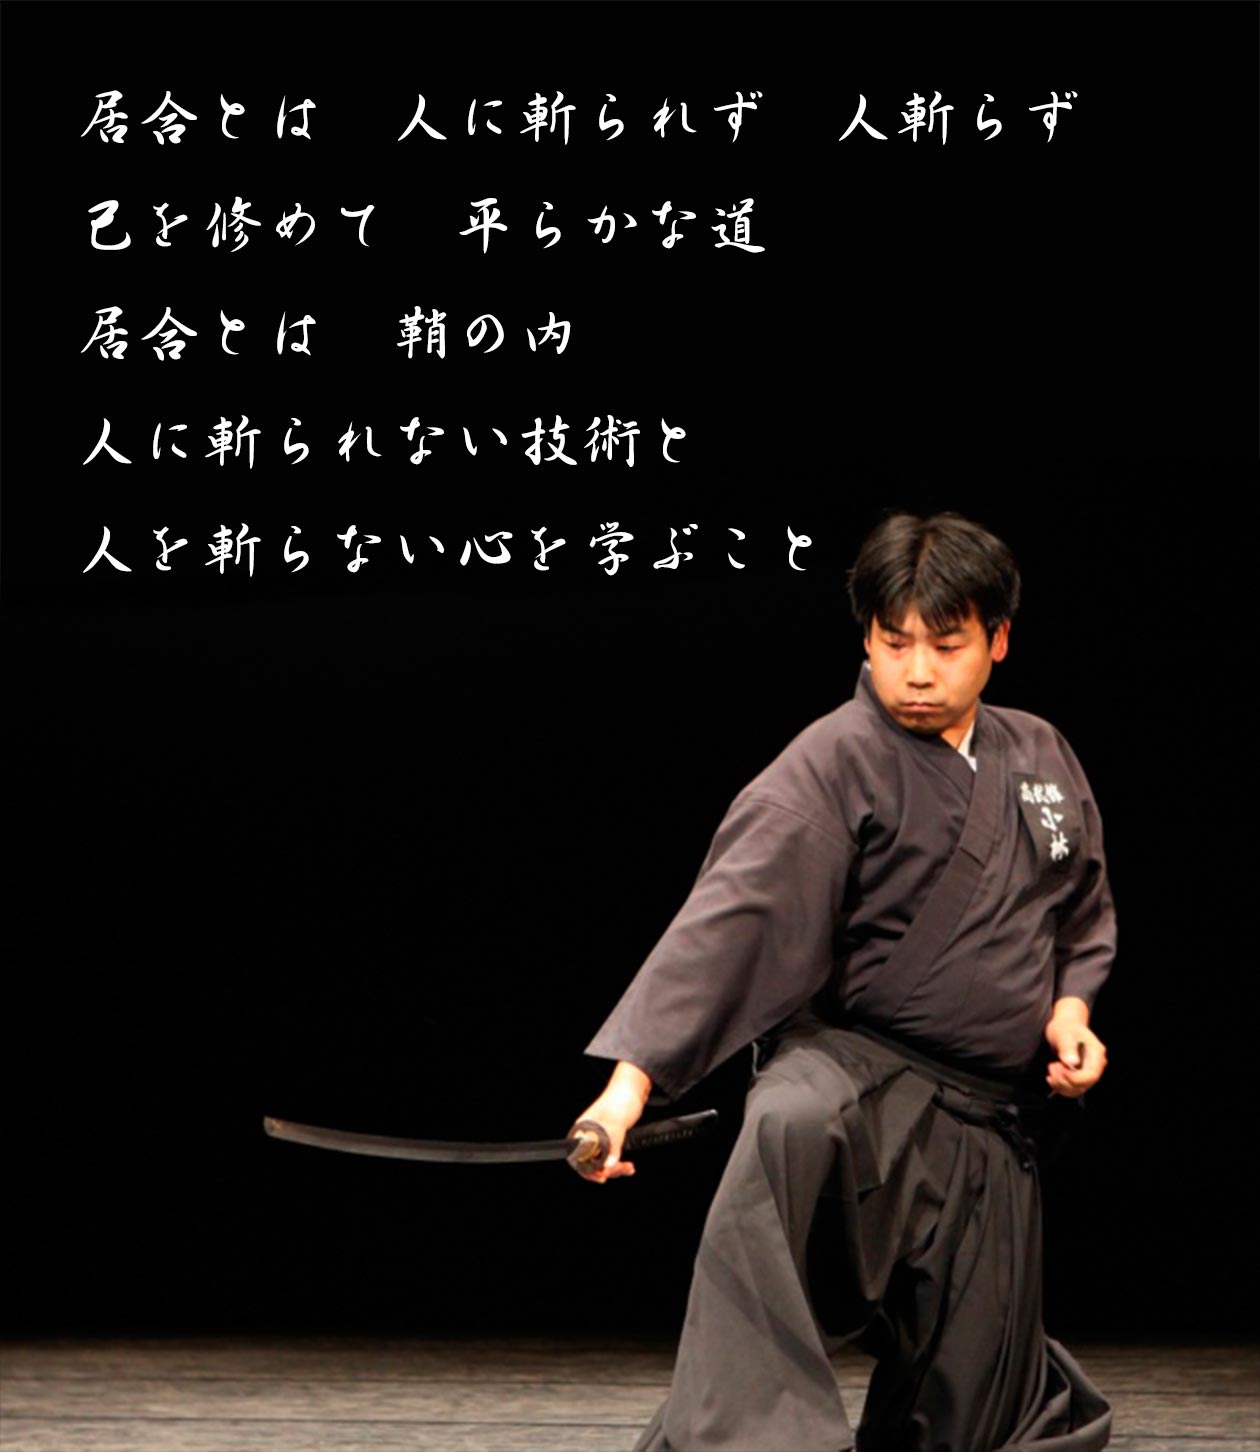 居合とは　人に斬られず　人斬らず
己を修めて　平らかな道
居合とは　鞘の内
人に斬られない技術と
人を斬らない心を学ぶこと
小林